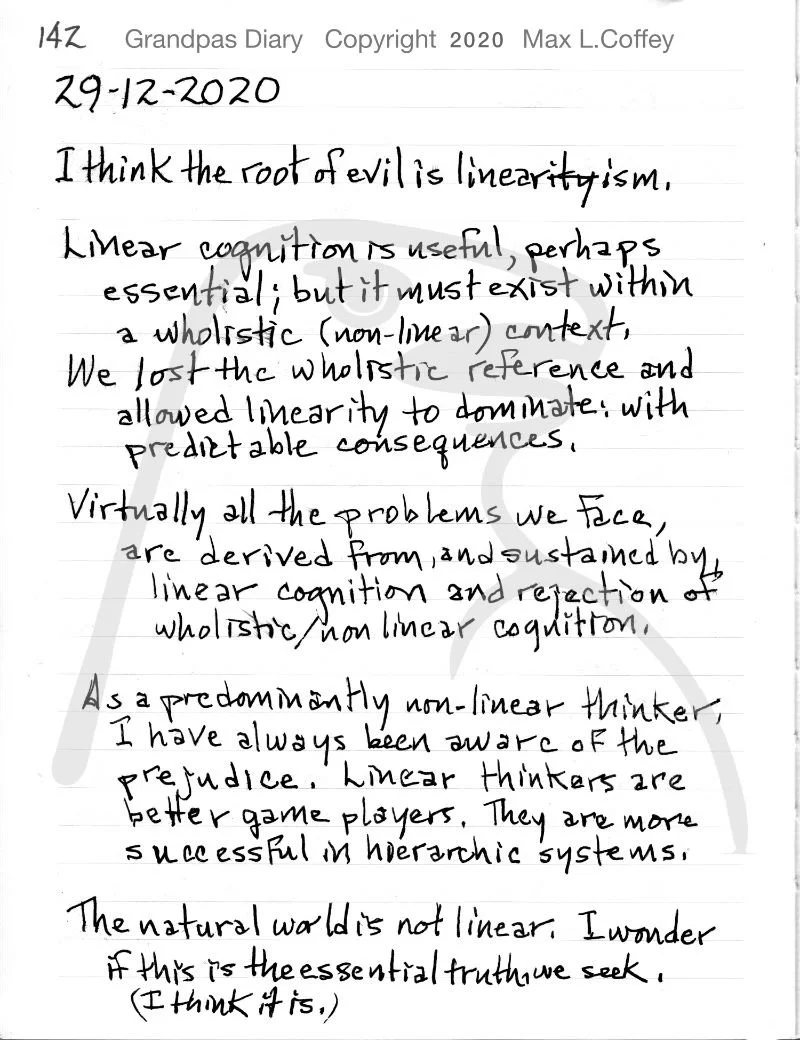 142 Grandpas Diary Copyright 2020 Max L.Coffey
29-12-2020
I think the root of evil is linearityism.
Linear cognition is useful, perhaps
essential; but it must exist within
a wholistic (non-linear) context.
We lost the wholistic reference and
allowed linearity to dominate: with
predictable consequences.
Virtually all the problems we face,
are derived from, and sustained by,
linear cognition and rejection of
wholistic/non linear cognition.
As a predominantly non-linear thinker,
I have always been aware of the
prejudice. Linear thinkers are
better game players. They are more
successful in hierarchic systems.
The natural world is not linear. I wonder
if this is the essential truth, we seek.
(I think it is.)